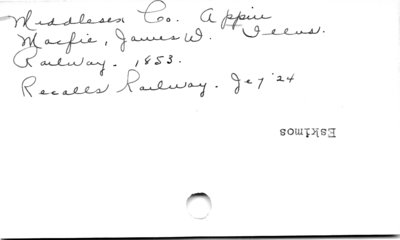 Middlesex Co. Appin
Macfie, James W. Illus.
Railway. 1853.
Recalls Railway. Je 7 '24
Eskimos